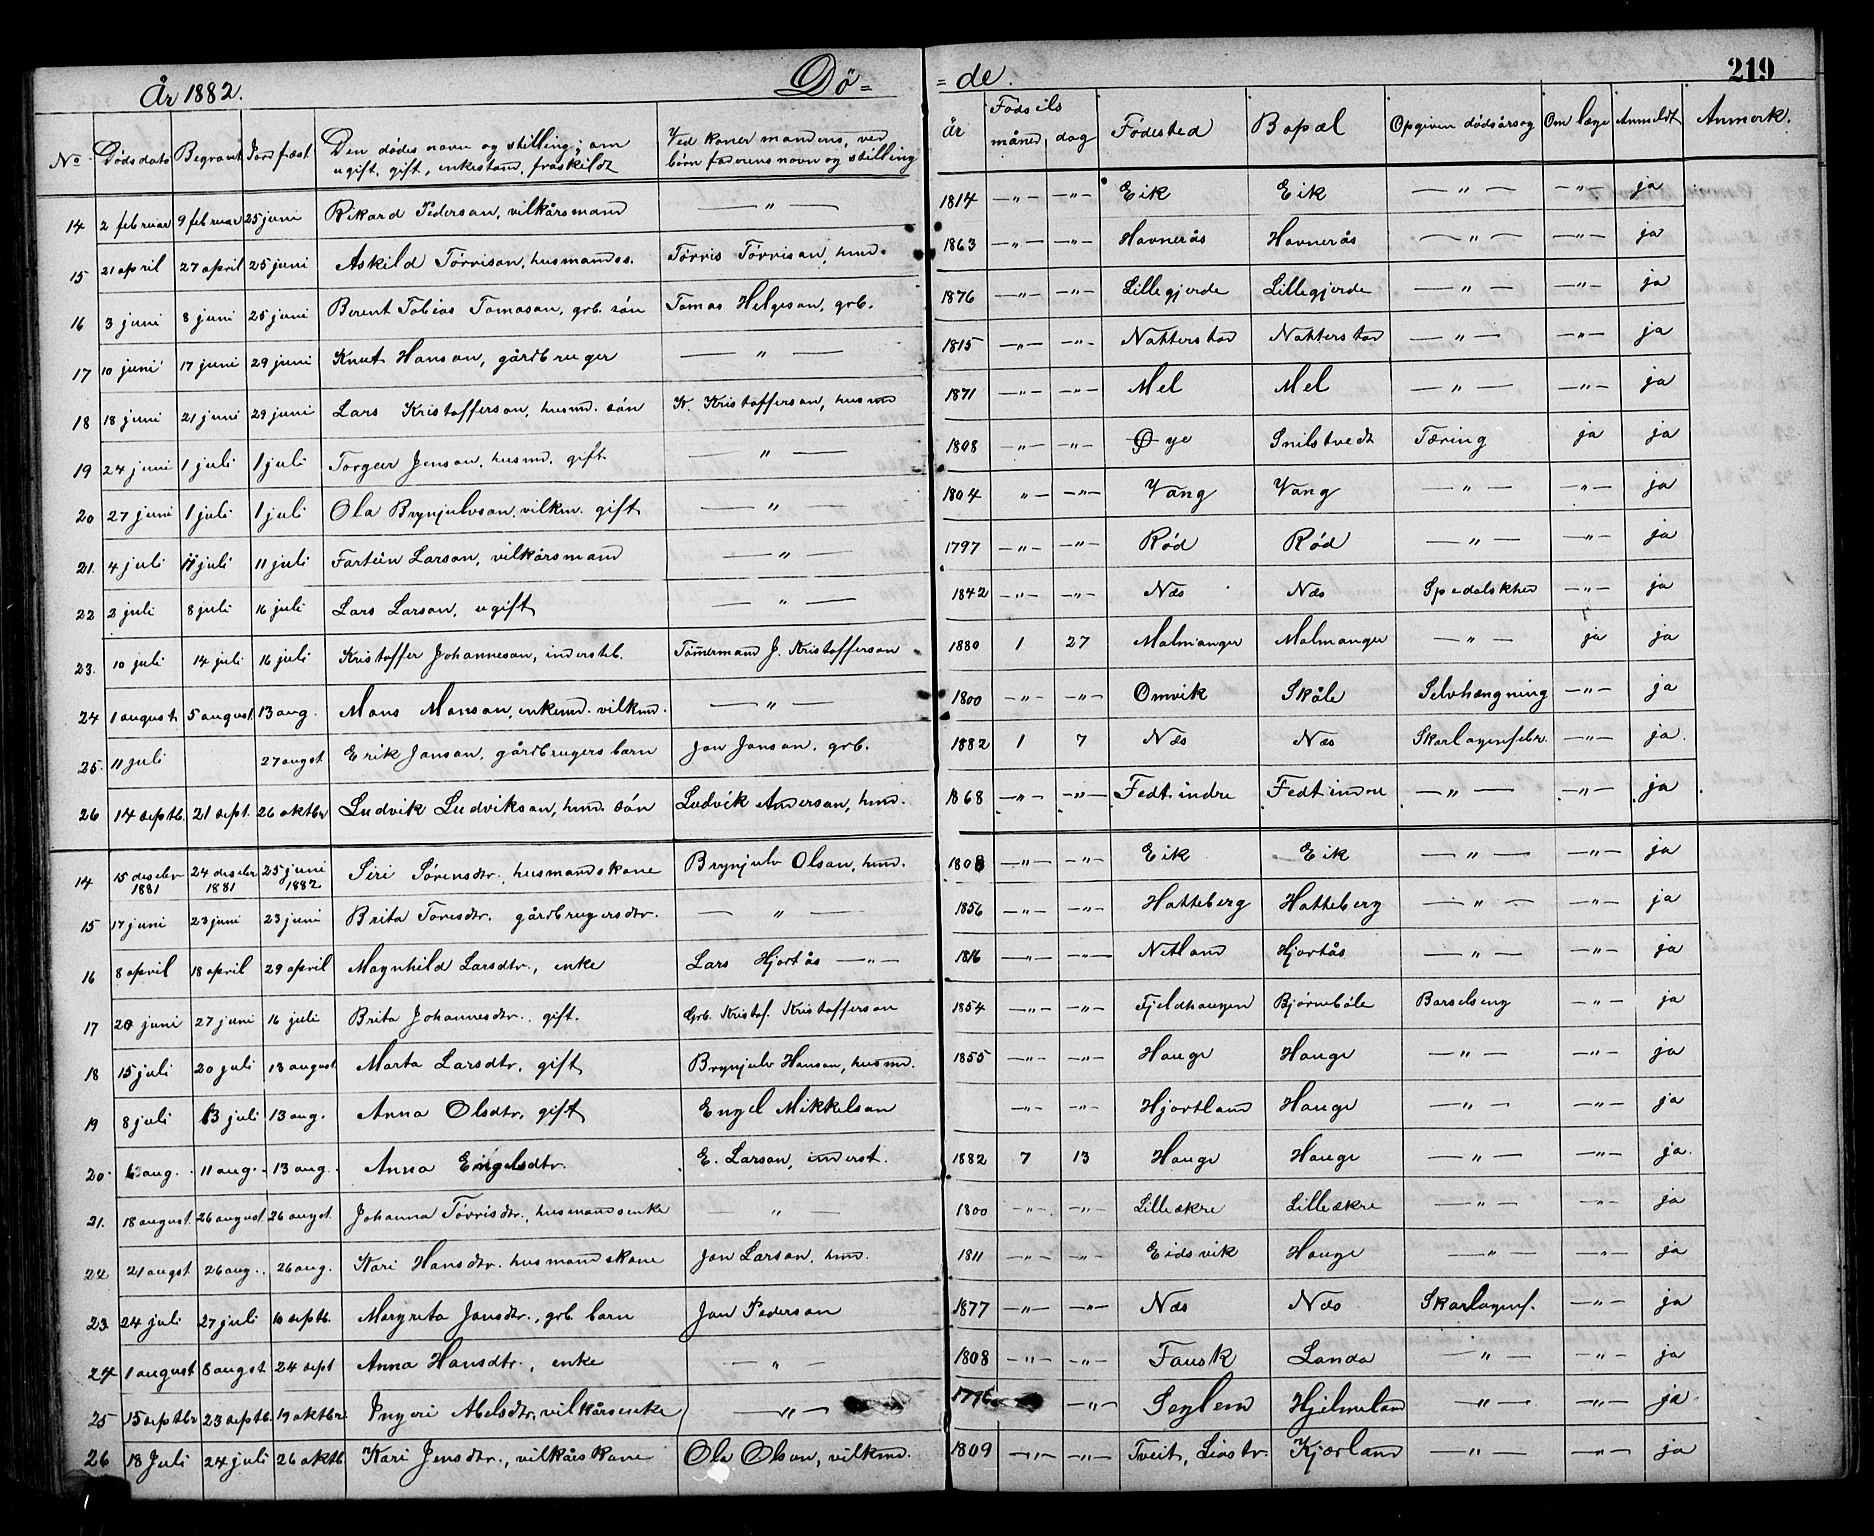 År 1882. Dö- = de. 219
No. Dödsdato Begravet Jordfæst Den dödes navn og stilling; om ugift, gift, enkestand, fraskildt Ved koner mandens, ved börn faderens navn og stilling år Födsels måned, dag Födested Bopæl Opgiven dödsårsag Om læge Anmeldt Anmerk.
14 2 februar 9 februar 25 juni Rikard Pederson, vilkårsmand — " — 1814 — " — — " — Eik Eik — " — — " — ja
15 21 april 27 april 25 juni Askild Törrison, husmands. Törris Törrison, hmd. 1863 — " — — " — Havnerås Havnerås — " — — " — ja
16 3 juni 8 juni 25 juni Berent Tobias Tomason, grb. sön Tomas Helgeson, grb. 1876 — " — — " — Lillegjerde Lillegjerde — " — — " — ja
17 10 juni 17 juni 29 juni Knut Hanson, gårdbruger — " — 1815 — " — — " — Natterstad Natterstad — " — — " — ja
18 18 juni 21 juni 29 juni Lars Kristofferson, husmd. sön K. Kristofferson, husmd 1871 — " — — " — Mel Mel — " — — " — ja
19 24 juni 1 juli 1 juli Torgeir Jenson, husmd. gift — " — 1808 — " — — " — Øye Snilstvedt Tæring ja ja
20 27 juni 1 juli 1 juli Ola Brynjulvson, vilkm. gift — " — 1804 " — — " — Vang Vang — " — — " — ja
21. 4 juli 11 juli 11 juli Fartein Larson, vilkårsmand — " — 1797 — " — — " — Rød Rød — " — — " — ja
22 2 juli 8 juli 16 juli Lars Larson, ugift — " — 1842 — " — — " — Næs Næs Spedalskhed — " — ja
23. 10 juli 14 juli 16 juli Kristoffer Johanneson, insterstb. Tömmermand J. Kristofferson 1880 1 27 Malmanger Malmanger — " — ja ja
24 1 august 5 august 13 aug. Mons Monson, enkemd. vilkmd. — " — 1800 — " — — " — Omvik Skåle Selvhængning — " — ja
25. 11 juli 27 augst Erik Janson, gårdbrugers barn Jon Janson, grb. 1882 1 7 Næs Næs Skarlagensfebr. — " — ja
26 14 septb. 21 sept. 26 oktbr Ludvik Ludvikson, hmd. sön Ludvik Anderson, hmd. 1868 — " — — " — Fedt indre Fedt indre — " — — " — ja
14 15 desebr 1881 24 desebr 1881 25 juni 1882 Siri Sörensdtr., husmandskone Brynjulv Olson, hmd. 1808 — " — — " — Eik Eik — " — — " — ja
15 17 juni 23 juni 23 juni Brita Toresdtr. gårdbrugersdtr. — " — 1856 — " — — " — Hatteberg Hatteberg — " — — " — ja
16 8 april 18 april 29 april Magnhild Larsdtr., enke Lars Hjortås — " — 1816 — " — — " — Netland Hjortås — " — — " — ja
17 20 juni 27 juni 16 juli Brita Johannesdtr., gift. Grb. Kristof. Kristofferson 1854 — " — — " — Fjeldhaugen Bjørnebøle Barselseng — " — ja
18 15 juli 20 juli 13 august Marta Larsdtr, gift Brynjulv Hanson, husmd. 1855 — " — — " — Hauge Hauge — " — — " — ja
19 8 juli 13 juli 13 aug. Anna Olsdtr, gift Engel Mikkelson — " — — " — Hjortland Hauge — " — — " — ja
20. 6 aug. 11 aug. 13 aug. Anna Engelsdtr. E. Larson, inderst. 1882 7 13 Hauge Hauge — " — — " — ja.
21. 18 august 26 august 26 augst. Johanna Törrisdtr., husmandsenke — " — 1800 — " — — " — Lilleækre Lilleækre — " — — " — ja
22 21 augst 26 aug. 26 aug. Kari Hansdtr. husmandskone Jon Larson, hmd. 1811 — " — — " — Eidsvik Hauge — " — — " — ja
23. 24 juli 27 juli 10 septb. Margreta Jonsdtr., grb. barn Jon Pederson 1877 — " — — " — Næs Næs Skarlagensf. — " — ja
24 1 august 8 augst 24 sept Anna Hansdtr., enke — " — 1808 — " — — " — Fausk Landa — " — — " — ja
25 15 septbr 23 septb. 19 oktbr. Ingeri Abelsdtr, vilkårsenke — " — 1796 — " — Seglem Hjelmeland — " — — " — ja.
26 18 Juli 24 juli 26 oktb. Kari Jensdtr., vilkårskone Ola Olson, vilkmd. 1809 — " — — " — Tveit, Kjærland — " — — " — ja